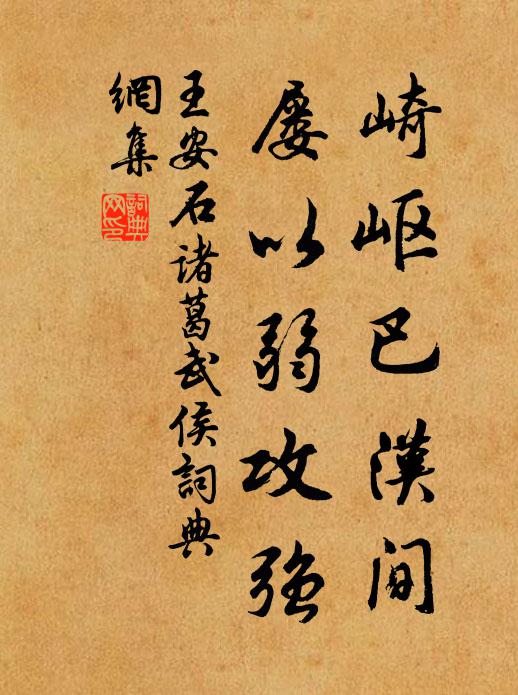 崎岖巴漢间
屡以弱攻强
王安石诸葛武侯詞典
網集
詞典
网印